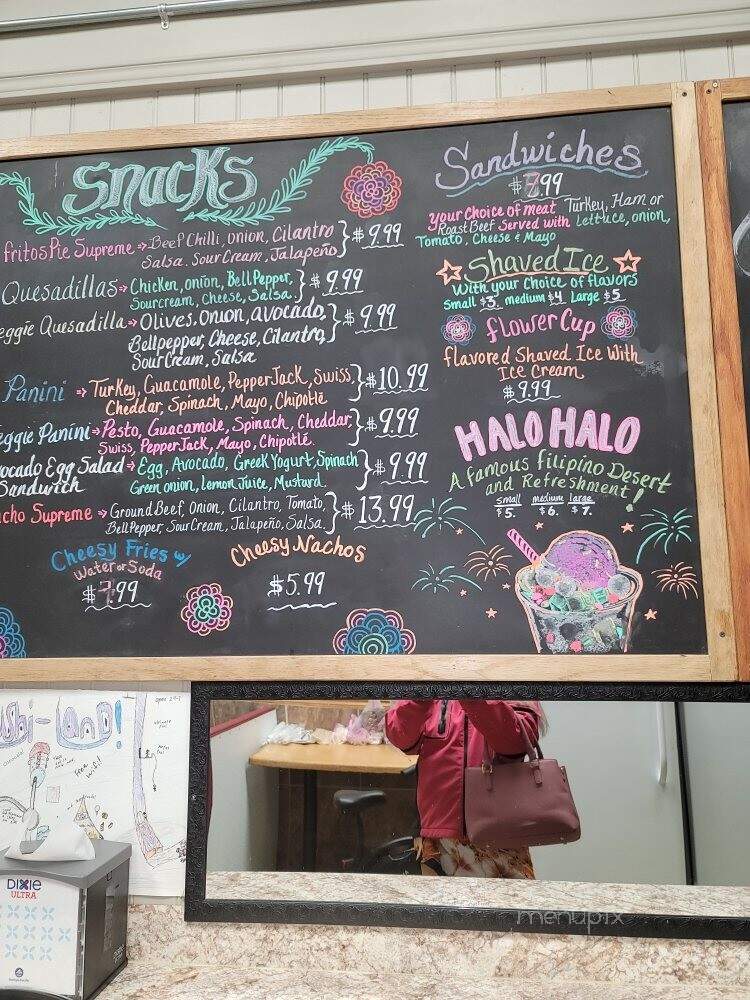 Snacks
fritos Pie Supreme → Beef Chilli, onion, Cilantro
Salsa. Sour Cream, Jalapeño
$9.99
Quesadillas → Chicken, onion, Bell Pepper,
Sourcream, Cheese, Salsa.
$9.99
eggie Quesadilla → Olives, onion, avocado,
Bellpepper, Cheese, Cilantro,
Sour Cream, Salsa
$9.99
Panini → Turkey, Guacamole, PepperJack, Swiss,
Cheddar, Spinach, Mayo, Chipotle
$10.99
eggie Panini → Pesto, Guacamole, Spinach, Cheddar,
Swiss, PepperJack, Mayo, Chipotle.
$9.99
ocado Egg Salad → Egg, Avocado, Greek Yogurt, Spinach
Sandwich Green onion, Lemon Juice, Mustard.
$9.99
cho Supreme → Ground Beef, Onion, Cilantro, Tomato,
Bell Pepper, Sour Cream, Jalapeño, Salsa.
$13.99
Cheesy Fries w/
Water or Soda
Cheesy Nachos
$5.99
Sandwiches
your Choice of meat Turkey, Ham or
Roast Beef Served with Lettuce, onion,
Tomato, Cheese & Mayo
Shaved Ice
With your Choice of flavors
Small $3 medium $4 Large $5
flower Cup
flavored Shaved Ice With
Ice Cream
$9.99
HALO HALO
A famous filipino Desert
and Refreshment!
small medium large
$5. $6. $7.
LAND!
free
wifi!
DIXIE
ULTRA
menupix